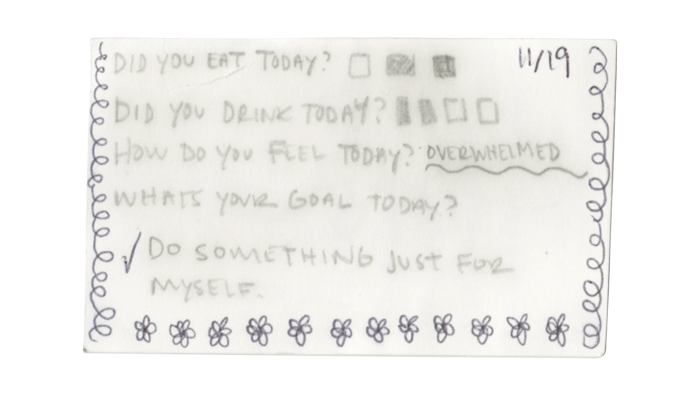 DID YOU EAT TODAY? 11/19
DID YOU DRINK TODAY?
HOW DO YOU FEEL TODAY? OVERWHELMED
WHATS YOUR GOAL TODAY?
DO SOMETHING JUST FOR
MYSELF.